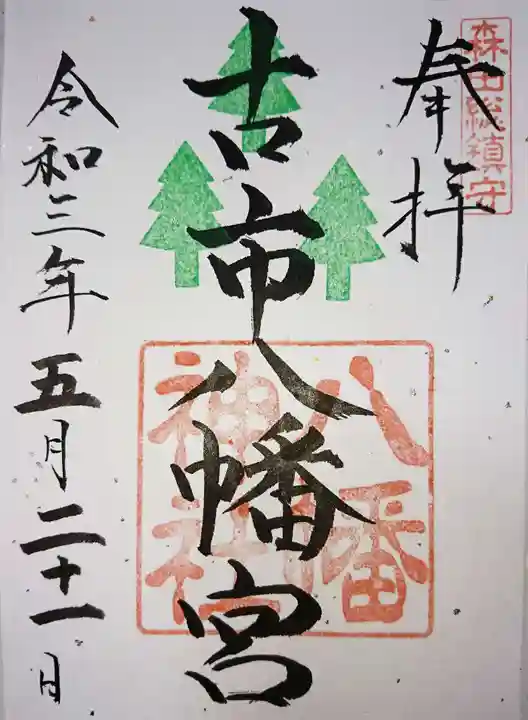 森田総鎮守
奉拝
古市八幡宮
八幡
神社
令和三年五月二十一日